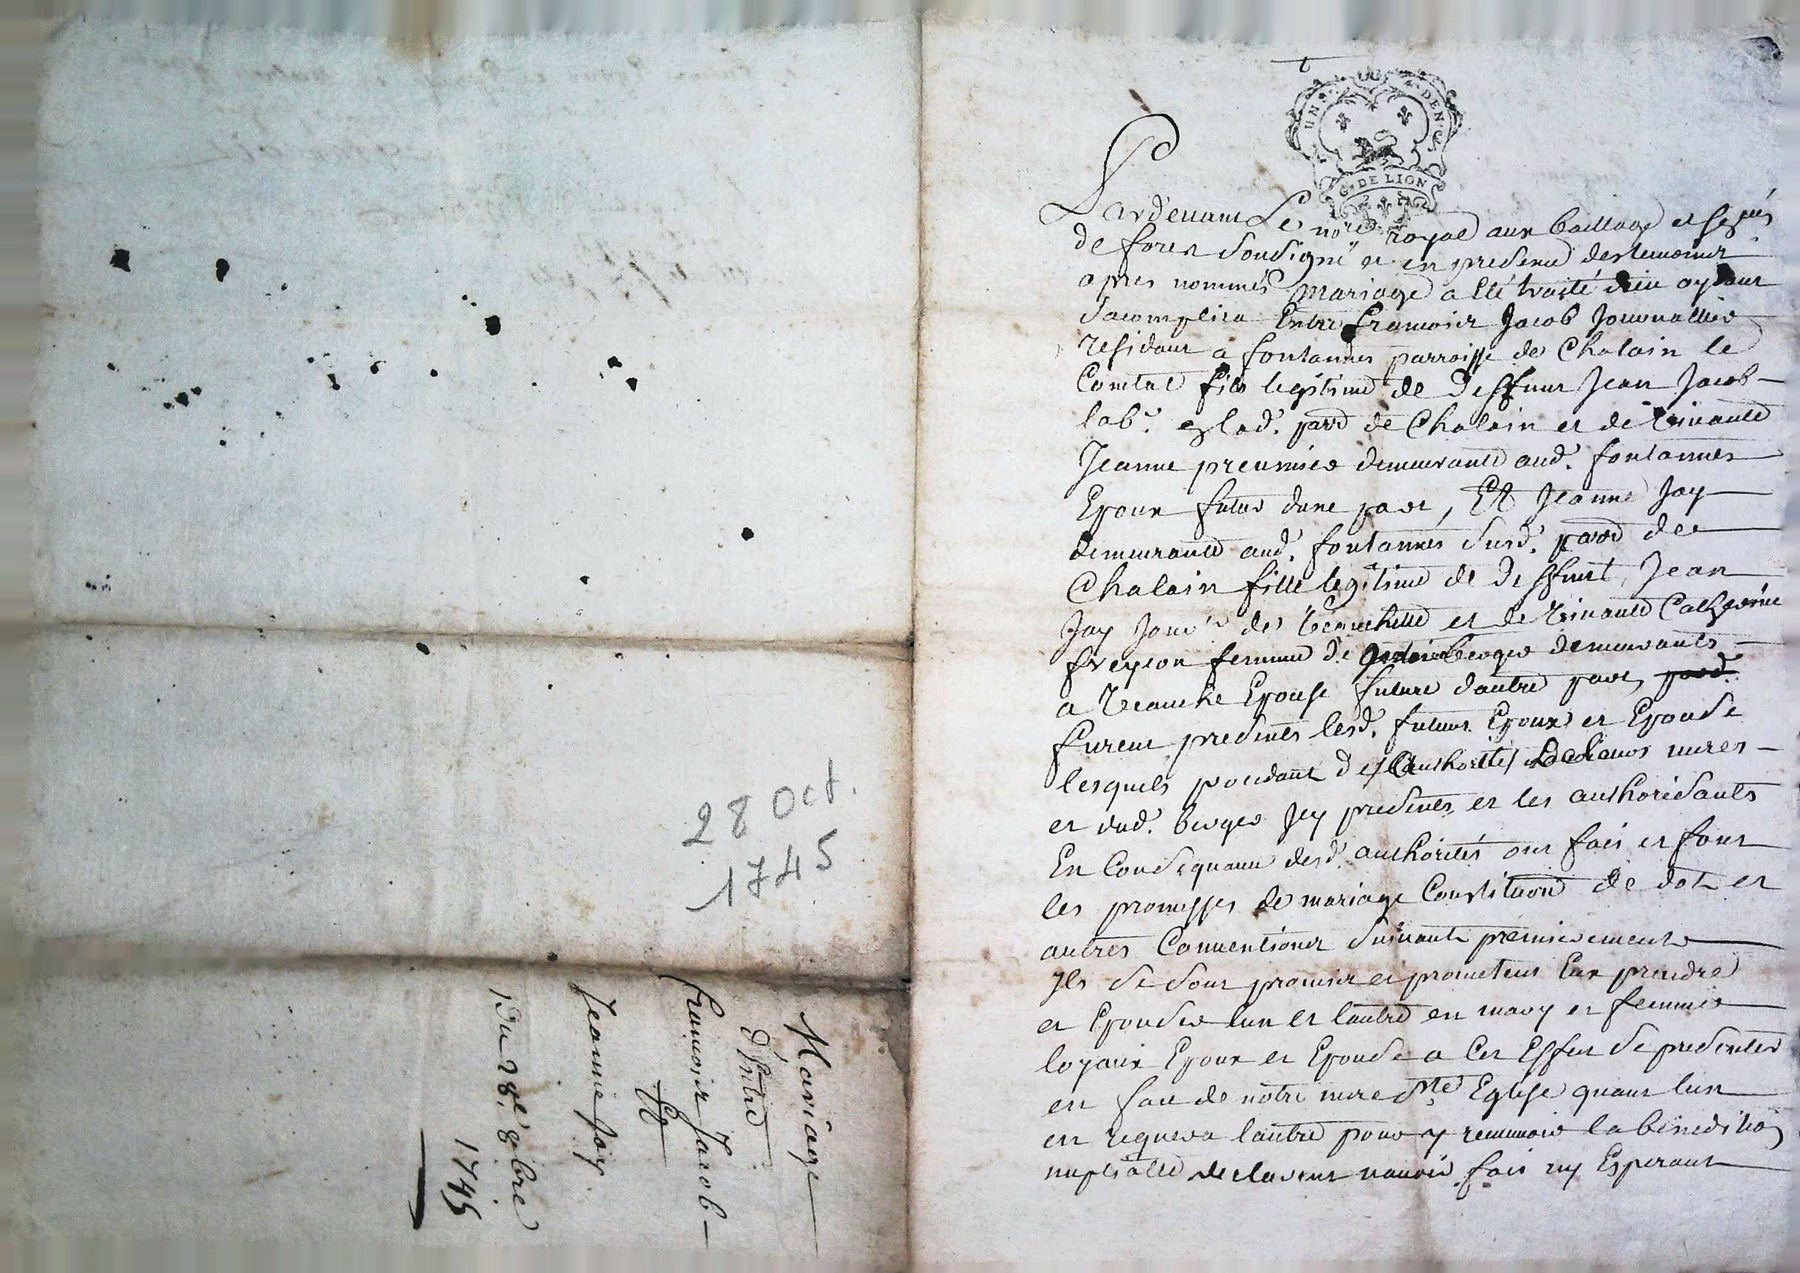 28 Oct.
1745
Mariage
d'Entre
francois Jacob
Et
Jeanne Jay
Du 28.e 8bre
1745
UN S. DEN. 6
G. DE LION
Pardevant Le nore royal aux bailliage et
de forez soussigné et en presence des temoins
apres nommés mariage a été traité dieu aydant
sacomplira Entre francois Jacob Journallier
residant a fontannes parroisse de Chalain le
Comtal fils legitime de deffunt Jean Jacob
lab.r aud. parr de Chalain et de vivante
Jeanne demeurante aud. fontannes
Epoux futur dune part, Et Jeanne Jay
demeurante aud. fontannes susd. parr de
Chalain fille legitime de deffunt Jean
Jay Jour.r de et de vivante Catherine
freyson femme de berger demeurants
a Epouse future dautre part,
furent presents lesd. futurs Epoux et Epouse
lesquels procedant de Lauthorité meres
et dud. berger Jcy presents et les authorisants
En Consequance desd. authorités ont fait et font
les promesses de mariage Constitution de dot et
autres Conventions suivants premierement
Jls se sont promis et promettent Eux prendre
et Epouser lun et lautre en mary et femme
loyaux Epoux et Epouse a Cet Effet se presenter
en face de notre mere Ste Eglise quant lun
en requera lautre pour y recevoir la benediction
nuptialle declarent navoir fait ny Esperant